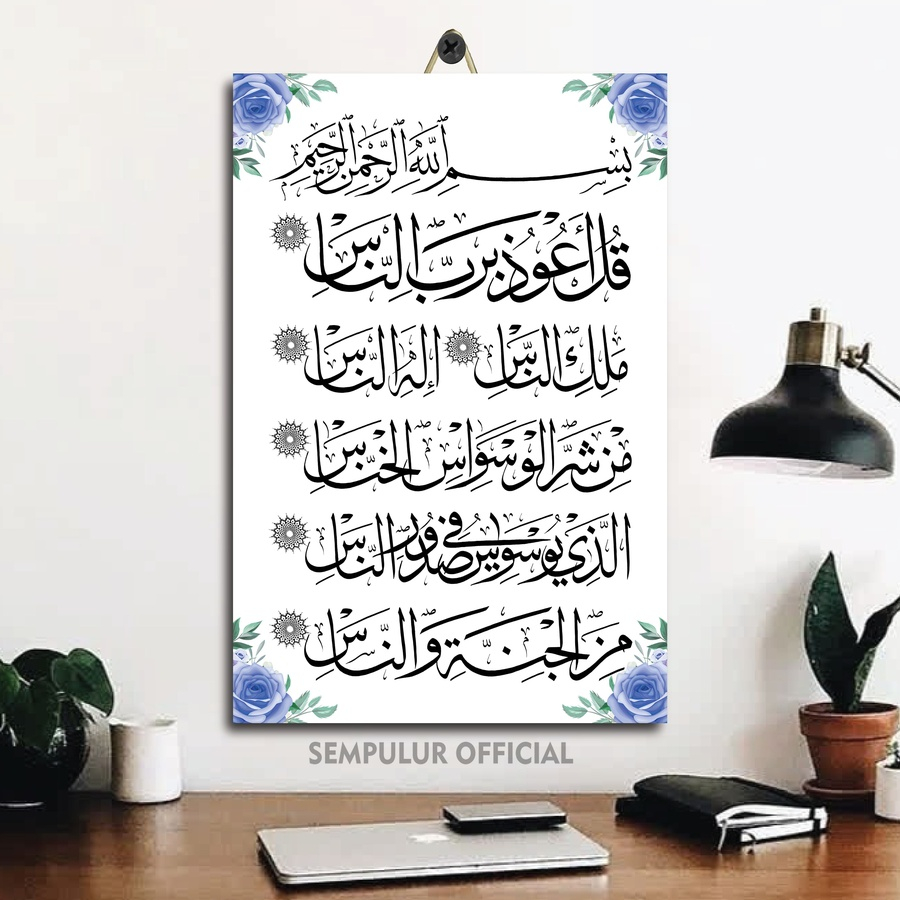 بِسْمِ اللَّهِ الرَّحْمَٰنِ الرَّحِيمِ
قُلْ أَعُوذُ بِرَبِّ النَّاسِ
مَلِكِ النَّاسِ إِلَٰهِ النَّاسِ
مِنْ شَرِّ الْوَسْوَاسِ الْخَنَّاسِ
الَّذِي يُوَسْوِسُ فِي صُدُورِ النَّاسِ
مِنَ الْجِنَّةِ وَالنَّاسِ
SEMPULUR OFFICIAL